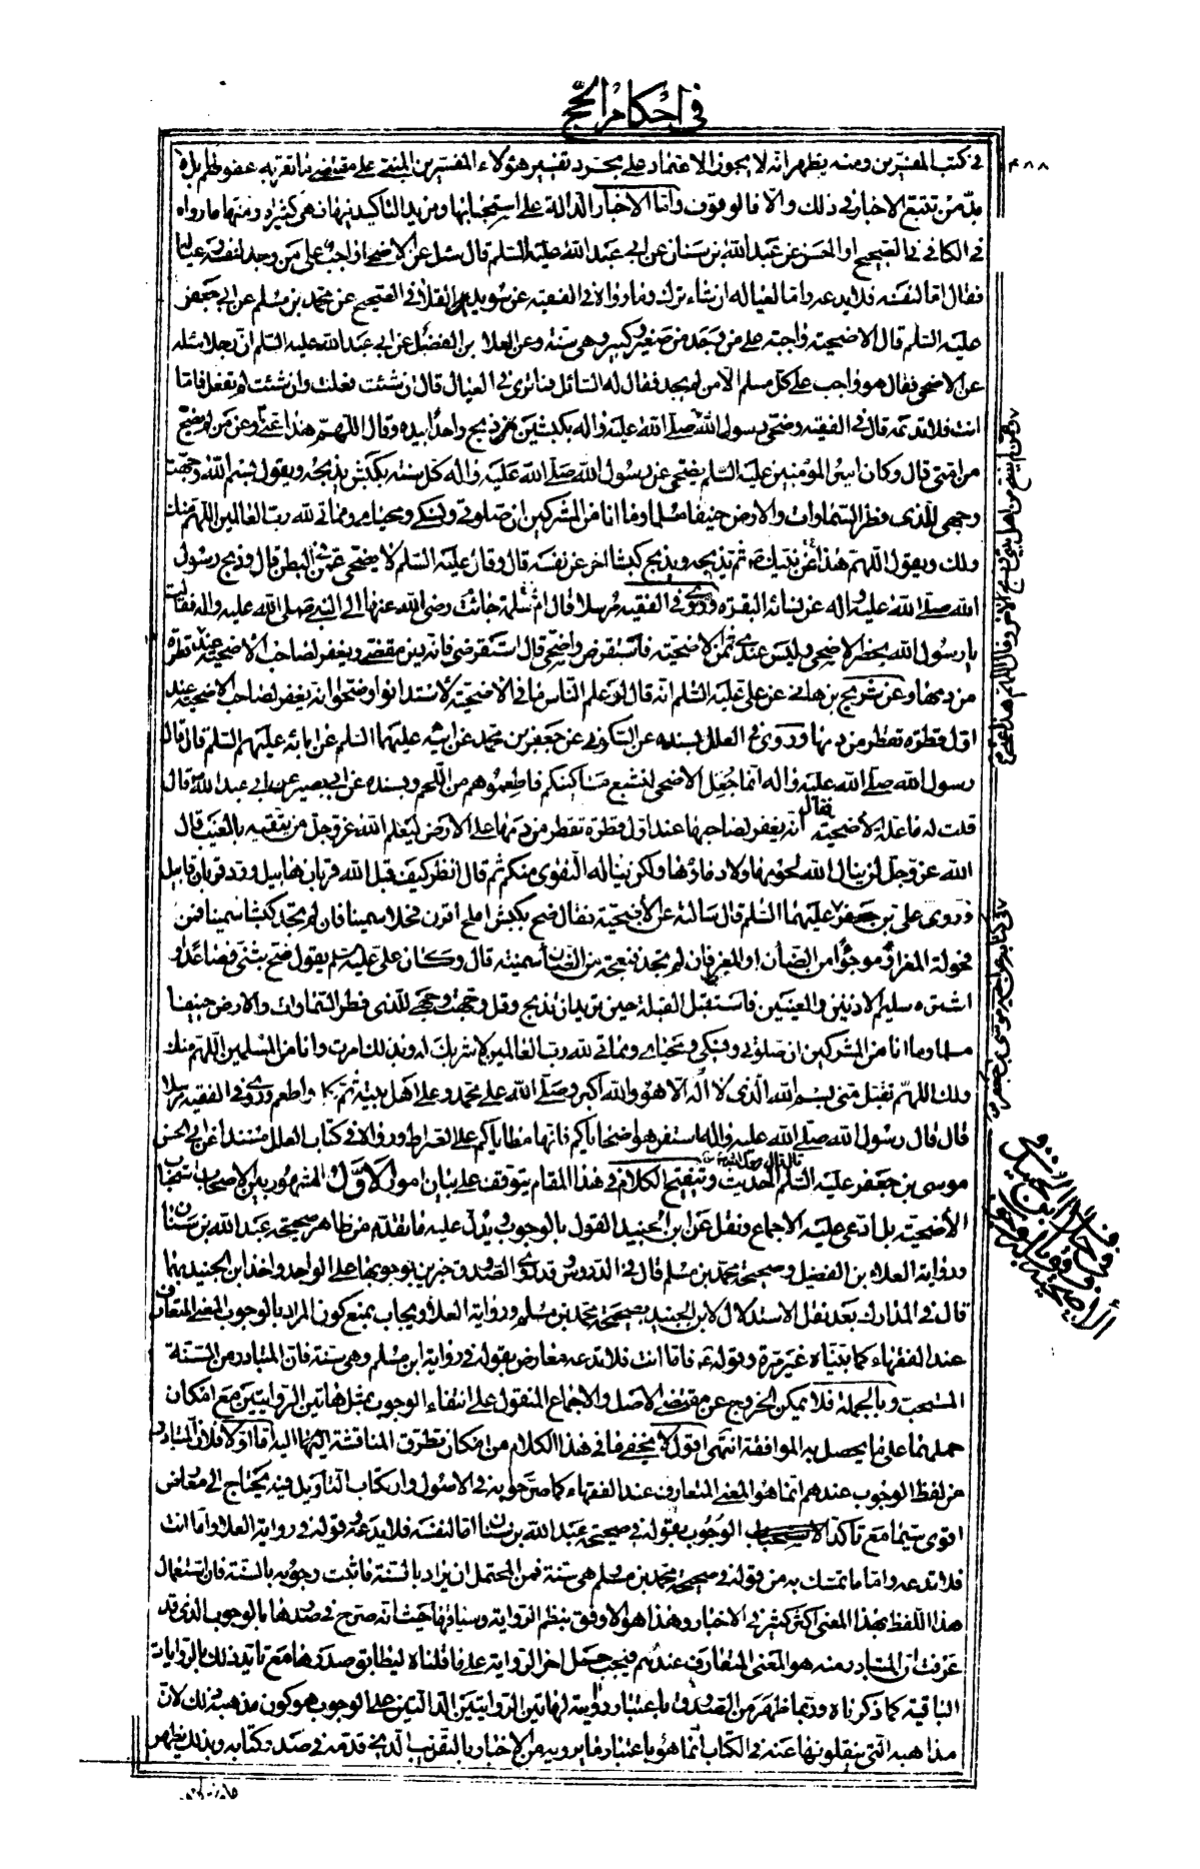 في احكام الحج
٤٨٨
في كتب المفسرين ومنه يظهر انه لا يجوز الاعتماد على مجرد تفسير هؤلاء المفسرين المبني على مقتضى ما تقربه عقولهم بل لا
بد من تتبع الاخبار في ذلك والا فالوقوف واما الاخبار الدالة على استحبابها ومزيد التاكيد فيها فهي كثيرة ومنها ما رواه
في الكافي في الصحيح او الحسن عن عبد الله بن سنان عن ابي عبد الله عليه السلم قال سئل عن الاضحى اواجب على من وجد لنفسه وعياله
فقال اما لنفسه فلا يدعه واما لعياله ان شاء تركه وما رواه في الفقيه عن سويد القلا في الصحيح عن محمد بن مسلم عن ابي جعفر
عليه السلم قال الاضحية واجبة على من وجد من صغير وكبير وهي سنة وعن العلا بن الفضيل عن ابي عبد الله عليه السلم ان رجلا سئله
عن الاضحى فقال هو واجب على كل مسلم الا من لم يجد فقال له السائل فما ترى في العيال قال ان شئت فعلت وان شئت لم تفعل فاما
انت فلا تدعه قال في الفقيه وضحى رسول الله صلى الله عليه واله بكبشين ذبح واحدا بيده وقال اللهم هذا عني وعن من لم يضح
من امتي قال وكان امير المؤمنين عليه السلم يضحي عن رسول الله صلى الله عليه واله كل سنة بكبش يذبحه ويقول بسم الله وجهت
وجهي للذي فطر السماوات والارض حنيفا مسلما وما انا من المشركين ان صلوتي ونسكي ومحياي ومماتي لله رب العالمين اللهم منك
ولك ويقول اللهم هذا عن نبيك ثم يذبحه ويذبح كبشا اخر عن نفسه قال وقال عليه السلم لا يضحى عمن في البطن قال وذبح رسول
الله صلى الله عليه واله عن نسائه البقرة وروى في الفقيه مرسلا قال ام سلمة جائت رضي الله عنها الى النبي صلى الله عليه واله فقالت
يا رسول الله يحضر الاضحى وليس عندي ثمن الاضحية فاستقرض واضحي قال استقرضي فانه دين مقضي ويغفر لصاحب الاضحية عند اول قطرة
من دمها وعن شريح بن هاني عن علي عليه السلم انه قال لو علم الناس ما في الاضحية لاستدانوا وضحوا انه يغفر لصاحب الاضحية عند
اول قطرة تقطر من دمها وروى في العلل بسنده عن السكوني عن جعفر بن محمد عن ابيه عليهما السلم عن ابائه عليهم السلم قال قال
رسول الله صلى الله عليه واله انما جعل الاضحى لتشبع مساكينكم فاطعموهم من اللحم وبسنده عن ابي بصير عن ابي عبد الله قال
قلت له ما علة الاضحية فقال انه يغفر لصاحبها عند اول قطرة تقطر من دمها على الارض ليعلم الله عز وجل من يتقيه بالغيب قال
الله عز وجل لن ينال الله لحومها ولا دماؤها ولكن يناله التقوى منكم ثم قال انظر كيف قبل الله قربان هابيل ورد قربان قابيل
وروى علي بن جعفر عليهما السلم قال سالته عن الاضحية فقال ضح بكبش املح اقرن فحلا سمينا فان لم تجد كبشا سمينا فمن
فحولة المعز او موجوا من الضان او المعز فان لم تجد فنعجة من الضان سمينة قال وكان علي عليه السلم يقول ضح بثني فصاعدا و
اشتره سليم الاذنين والعينين فاستقبل القبلة حين تريد ان تذبح وقل وجهت وجهي للذي فطر السماوات والارض حنيفا
مسلما وما انا من المشركين ان صلوتي ونسكي ومحياي ومماتي لله رب العالمين لا شريك له وبذلك امرت وانا من المسلمين اللهم منك
ولك اللهم تقبل مني بسم الله الذي لا اله الا هو والله اكبر وصلى الله على محمد وعلى اهل بيته ثم كل واطعم وروى في الفقيه مرسلا
قال قال رسول الله صلى الله عليه واله استفرهوا ضحاياكم فانها مطاياكم على الصراط ورواه في كتاب العلل مسندا عن ابي الحسن
موسى بن جعفر عليه السلم الحديث وتنقيح الكلام في هذا المقام يتوقف على بيان امور الاول المشهور بين الاصحاب استحباب
الاضحية بل ادعي عليه الاجماع ونقل عن ابن الجنيد القول بالوجوب ويدل عليه ما تقدم من ظاهر صحيحة عبد الله بن سنان
ورواية العلاء بن الفضيل وصحيحة محمد بن مسلم قال في الدروس وروى الصدوق خبرين بوجوبها على الواحد واخذ ابن الجنيد بهما
قال في المدارك بعد نقل الاستدلال لابن الجنيد بصحيحة محمد بن مسلم ورواية العلا ويجاب بمنع كون المراد بالوجوب المعنى المتعارف
عند الفقهاء كما بيناه غير مرة وقوله ع فاما انت فلا تدعه معارض بقوله في رواية ابن مسلم وهي سنة فان المتبادر من السنة
المستحب وبالجملة فلا يمكن الخروج عن مقتضى الاصل والاجماع المنقول على انتفاء الوجوب بمثل هاتين الروايتين مع امكان
حملهما على ما يحصل به الموافقة انتهى اقول لا يخفى ما في هذا الكلام من امكان تطرق المناقشة اليها اليه اما اولا فلان المتبادر
من لفظ الوجوب عندهم انما هو المعنى المتعارف عند الفقهاء كما صرحوا به في الاصول وارتكاب التاويل فيه يحتاج الى معارض
اقوى سيما مع تاكد الوجوب بقوله في صحيحة عبد الله بن سنان اما لنفسه فلا يدعه وقوله في رواية العلا واما انت
فلا تدعه واما ما تمسك به من قوله في صحيحة محمد بن مسلم هي سنة فمن المحتمل ان يراد بالسنة ما ثبت وجوبه بالسنة فان استعمال
هذا اللفظ بهذا المعنى اكثر كثير في الاخبار وهذا هو الاوفق بنظم الرواية وسياقها حيث انه صرح في صدرها بالوجوب الذي قد
عرفت ان المتبادر منه هو المعنى المتعارف عندهم فيجب حمل اخر الرواية على ما قلناه ليطابق صدرها مع تايد ذلك بالروايات
الباقية كما ذكرناه وربما ظهر من الصدوق باعتبار روايته لهاتين الروايتين الدالتين على الوجوب هو كون مذهبه ذلك لان
مذاهبه التي ينقلونها عنه في الكتاب انما هو باعتبار ما يرويه من الاخبار بالتقريب الذي قدمه في صدر كتابه وبذلك يظهر